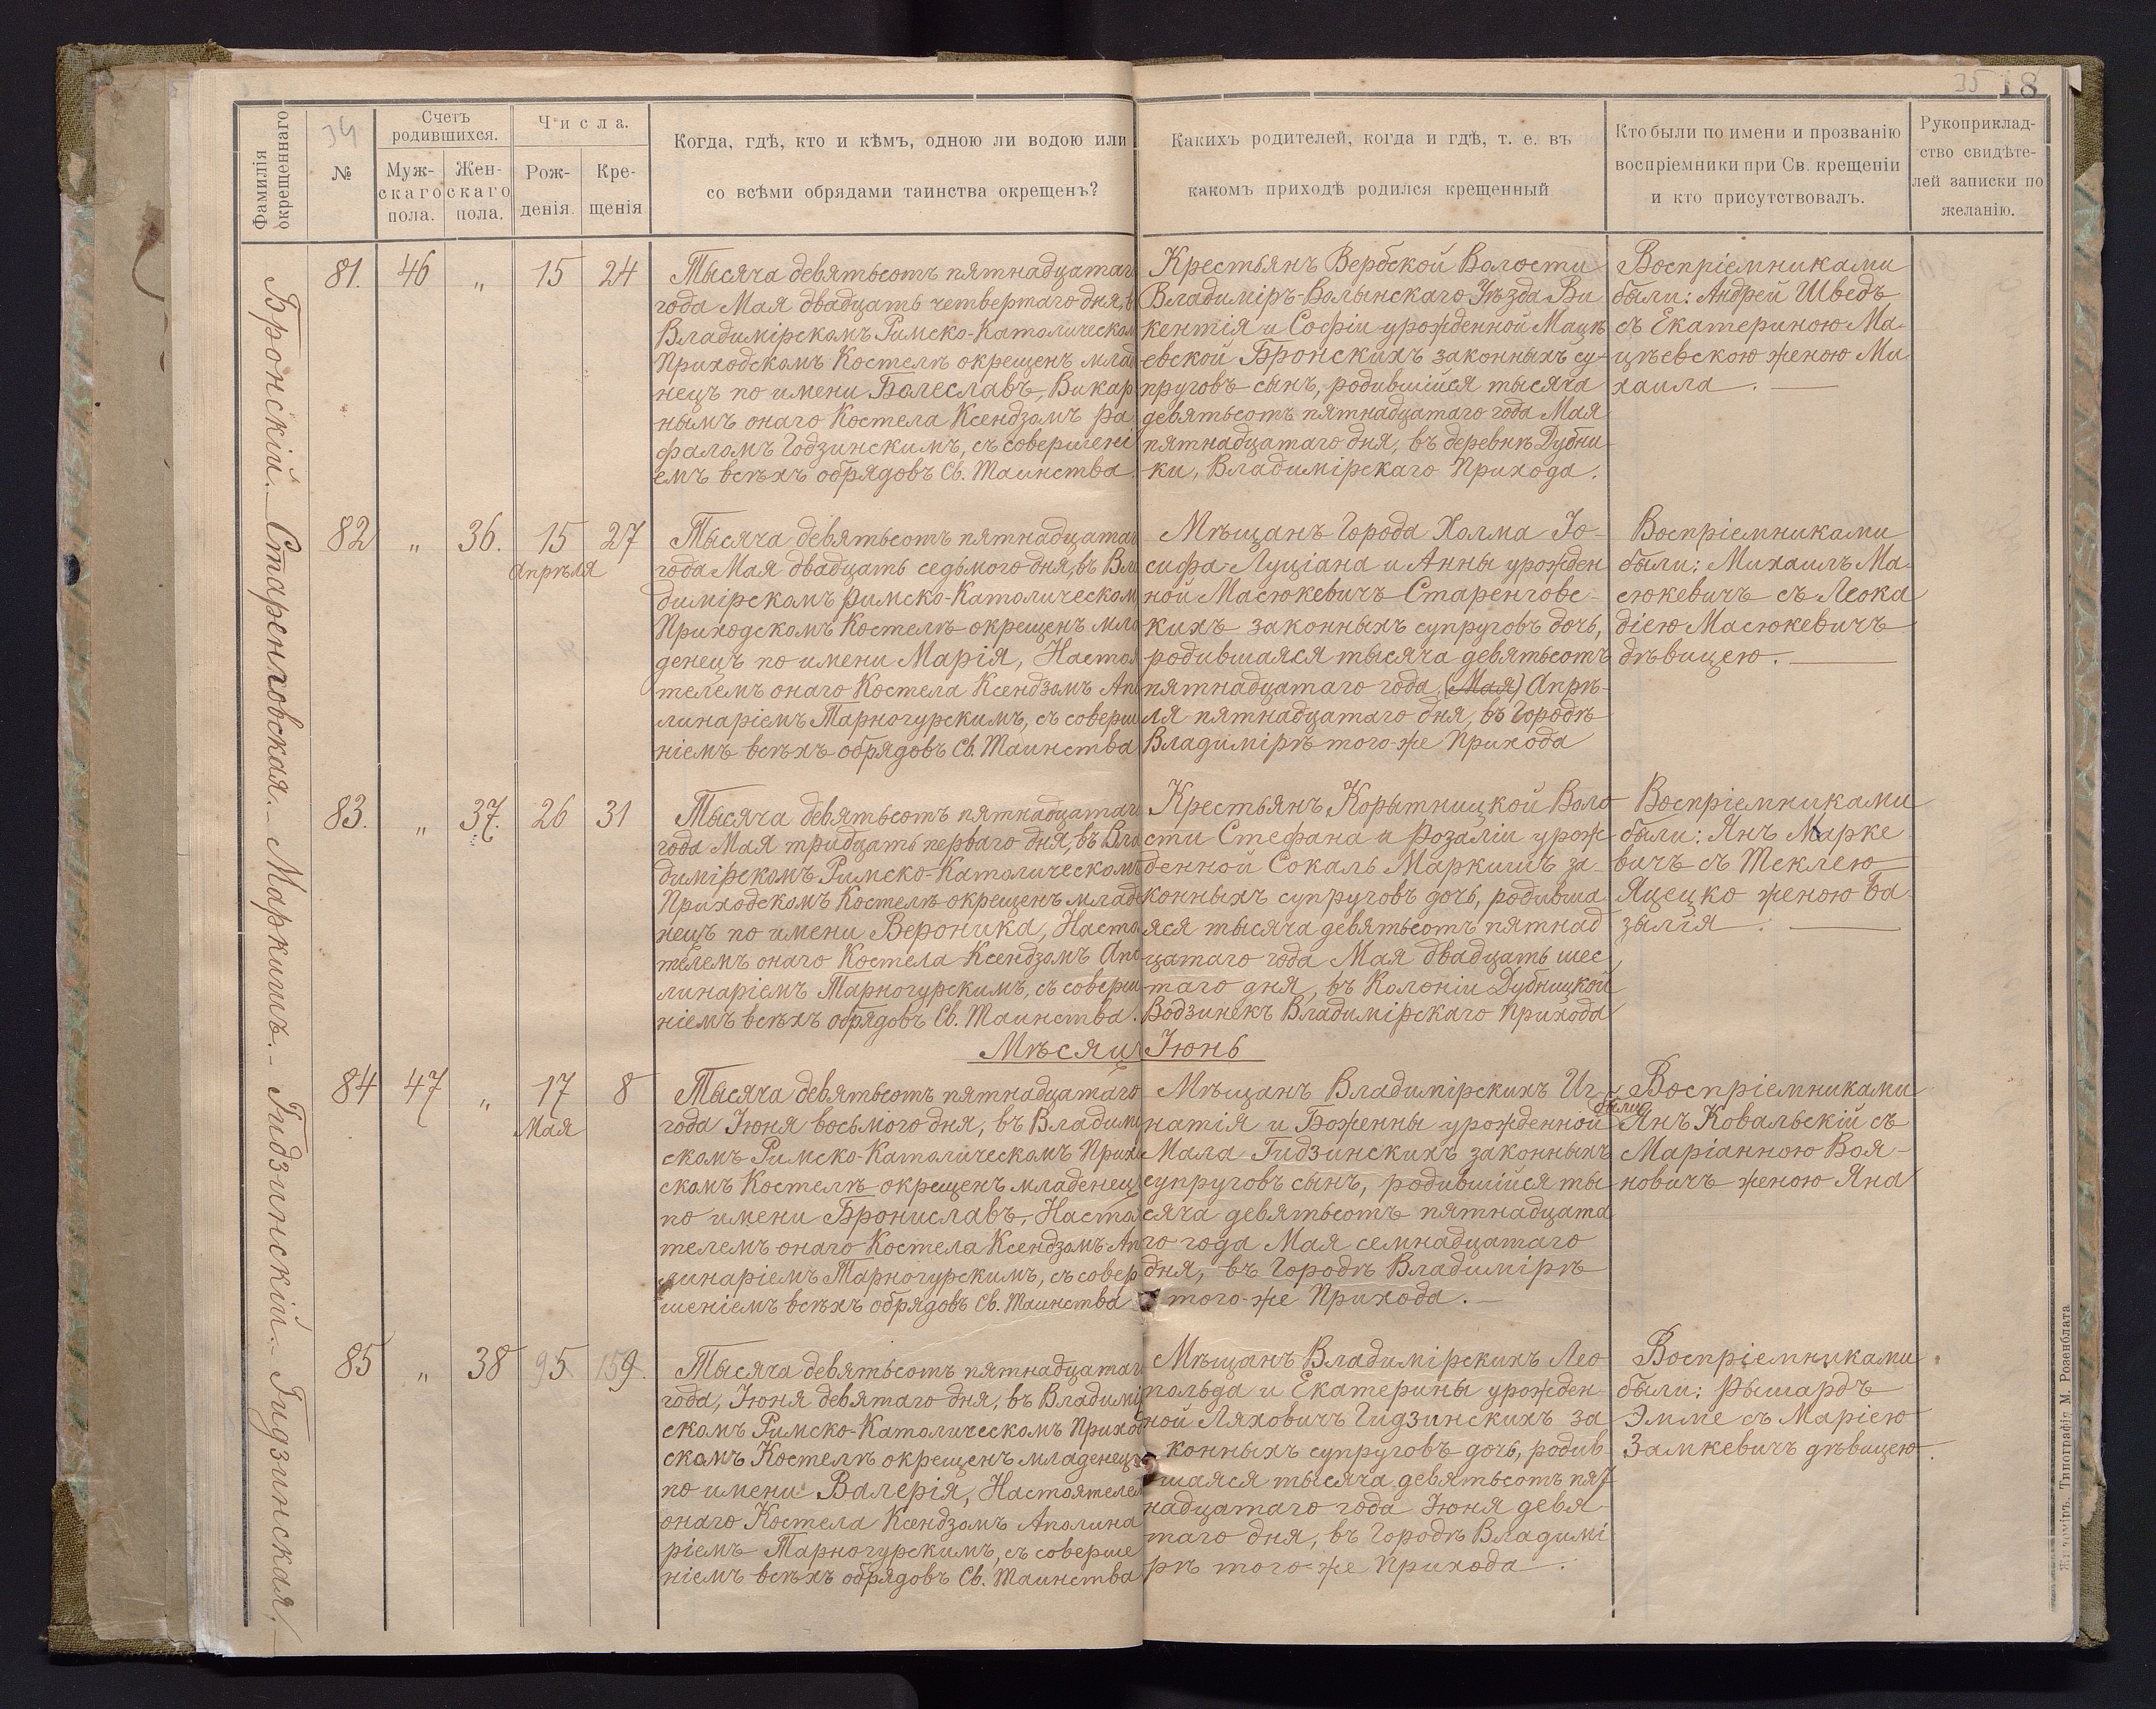 34
35 18
Фамилія окрещеннаго
№
Счетъ родившихся.
Муж-
скаго
пола.
Жен-
скаго
пола.
Числа.
Рож-
денія.
Кре-
щенія
Когда, гдѣ, кто и кѣмъ, одною ли водою или
со всѣми обрядами таинства окрещенъ?
Каких родителей, когда и гдѣ, т. е. въ
какомъ приходѣ родился крещенный
Кто были по имени и прозванію
воспріемники при Св. крещеніи
и кто присутствовалъ.
Рукоприклад-
ство свидѣте-
лей записки по
желанію.
Бронскій. – Старенговская. – Маркишъ. – Гидзинскій. – Гидзинская. –
81. 46 „ 15 24
Тысяча девятьсотъ пятнадцатаго
года Мая двадцать четвертаго дня, въ
Владимірскомъ Римско-Католическом
Приходскомъ Костелѣ окрещенъ млад
нецъ по имени Болеславъ, Викар
нымъ онаго Костела Ксендзомъ Ра
фаломъ Годзинскимъ, съ совершені
емъ всѣхъ обрядовъ Св. Таинства.
Крестьянъ Вербской Волости
Владиміръ-Волынскаго Уѣзда Ви
кентія и Софіи урожденной Мацѣ
евской Бронскихъ законныхъ су-
пруговъ сынъ, родившійся тысяча
девятьсотъ пятнадцатаго года Мая
пятнадцатаго дня, въ деревнѣ Дубни-
ки, Владимірскаго Прихода.
Воспріемниками
были: Андрей Шведъ
съ Екатериною Ма-
цѣевскою женою Ми
хаила.
82 „ 36. 15 27
Апрѣля
Тысяча девятьсотъ пятнадцатаг
года Мая двадцать седьмого дня, въ Вла
димірскомъ Римско-Католическом
Приходскомъ Костелѣ окрещенъ мла
денецъ по имени Марія, Настоя
телемъ онаго Костела Ксендзомъ Апо
линаріемъ Тарногурскимъ, съ соверш
ніемъ всѣхъ обрядовъ Св. Таинства
Мѣщанъ Города Холма Іо-
сифа-Луціана и Анны урожден
ной Масюкевичъ Старенговс-
кихъ законныхъ супруговъ дочь,
родившаяся тысяча девятьсотъ
пятнадцатаго года (Мая) Апрѣ-
ля пятнадцатаго дня, въ Городѣ
Владимірѣ того-же Прихода
Воспріемниками
были: Михаилъ Ма-
сюкевичъ съ Леока
діею Масюкевичъ
дѣвицею.
83. „ 37. 26 31
Тысяча девятьсотъ пятнадцатаго
года Мая тридцать перваго дня, въ Вла
димірскомъ Римско-Католическомъ
Приходскомъ Костелѣ окрещенъ младе
нецъ по имени Вероника, Насто
телемъ онаго Костела Ксендзомъ Апо
линаріемъ Тарногурскимъ, съ соверш
ніемъ всѣхъ обрядовъ Св. Таинства.
Крестьянъ Корытницкой Воло
сти Стефана и Розаліи урож-
денной Сокалъ Маркишъ за-
конныхъ супруговъ дочь, родивша
яся тысяча девятьсотъ пятнад
цатаго года Мая двадцать шес
таго дня, въ Колоніи Дубницкой
Водзинекъ Владимірскаго Прихода
Воспріемниками
были: Янъ Марке
вичъ съ Теклею
Яцецко женою Ба-
зылія.
Мѣсяцъ Іюнь
84 47 „ 17 8
Мая
Тысяча девятьсотъ пятнадцатаго
года Іюня восьмого дня, въ Владимі
скомъ Римско-Католическомъ Прихо
скомъ Костелѣ окрещенъ младенецъ
по имени Брониславъ, Настоя
телемъ онаго Костела Ксендзомъ Ап
линаріемъ Тарногурскимъ, съ совер
шеніемъ всѣхъ обрядовъ Св. Таинства
Мѣщанъ Владимірскихъ Иг-
натія и Боженны урожденной
Мала Гидзинскихъ законныхъ
супруговъ сынъ, родившійся ты
сяча девятьсотъ пятнадцата
го года Мая семнадцатаго
дня, въ Городѣ Владимірѣ
того-же Прихода.
Воспріемниками
были
Янъ Ковальскій съ
Маріанною Воя-
новичъ женою Яна
85 „ 38 95 159.
Тысяча девятьсотъ пятнадцатаг
года, Іюня девятаго дня, въ Владимі
скомъ Римско-Католическомъ Приход
скомъ Костелѣ окрещенъ младенецъ
по имени Валерія, Настоятелем
онаго Костела Ксендзомъ Аполина
ріемъ Тарногурскимъ, съ соверше
ніемъ всѣхъ обрядовъ Св. Таинства
Мѣщанъ Владимірскихъ Лео
польда и Екатерины урожден
ной Ляховичъ Гидзинскихъ за
конныхъ супруговъ дочь, родив
шаяся тысяча девятьсотъ пят
надцатаго года Іюня девя
таго дня, въ Городѣ Владимі
рѣ того-же Прихода.
Воспріемниками
были: Рышардъ
Эмме съ Маріею
Замкевичъ дѣвицею.
Житоміръ. Типографія М. Розенблата